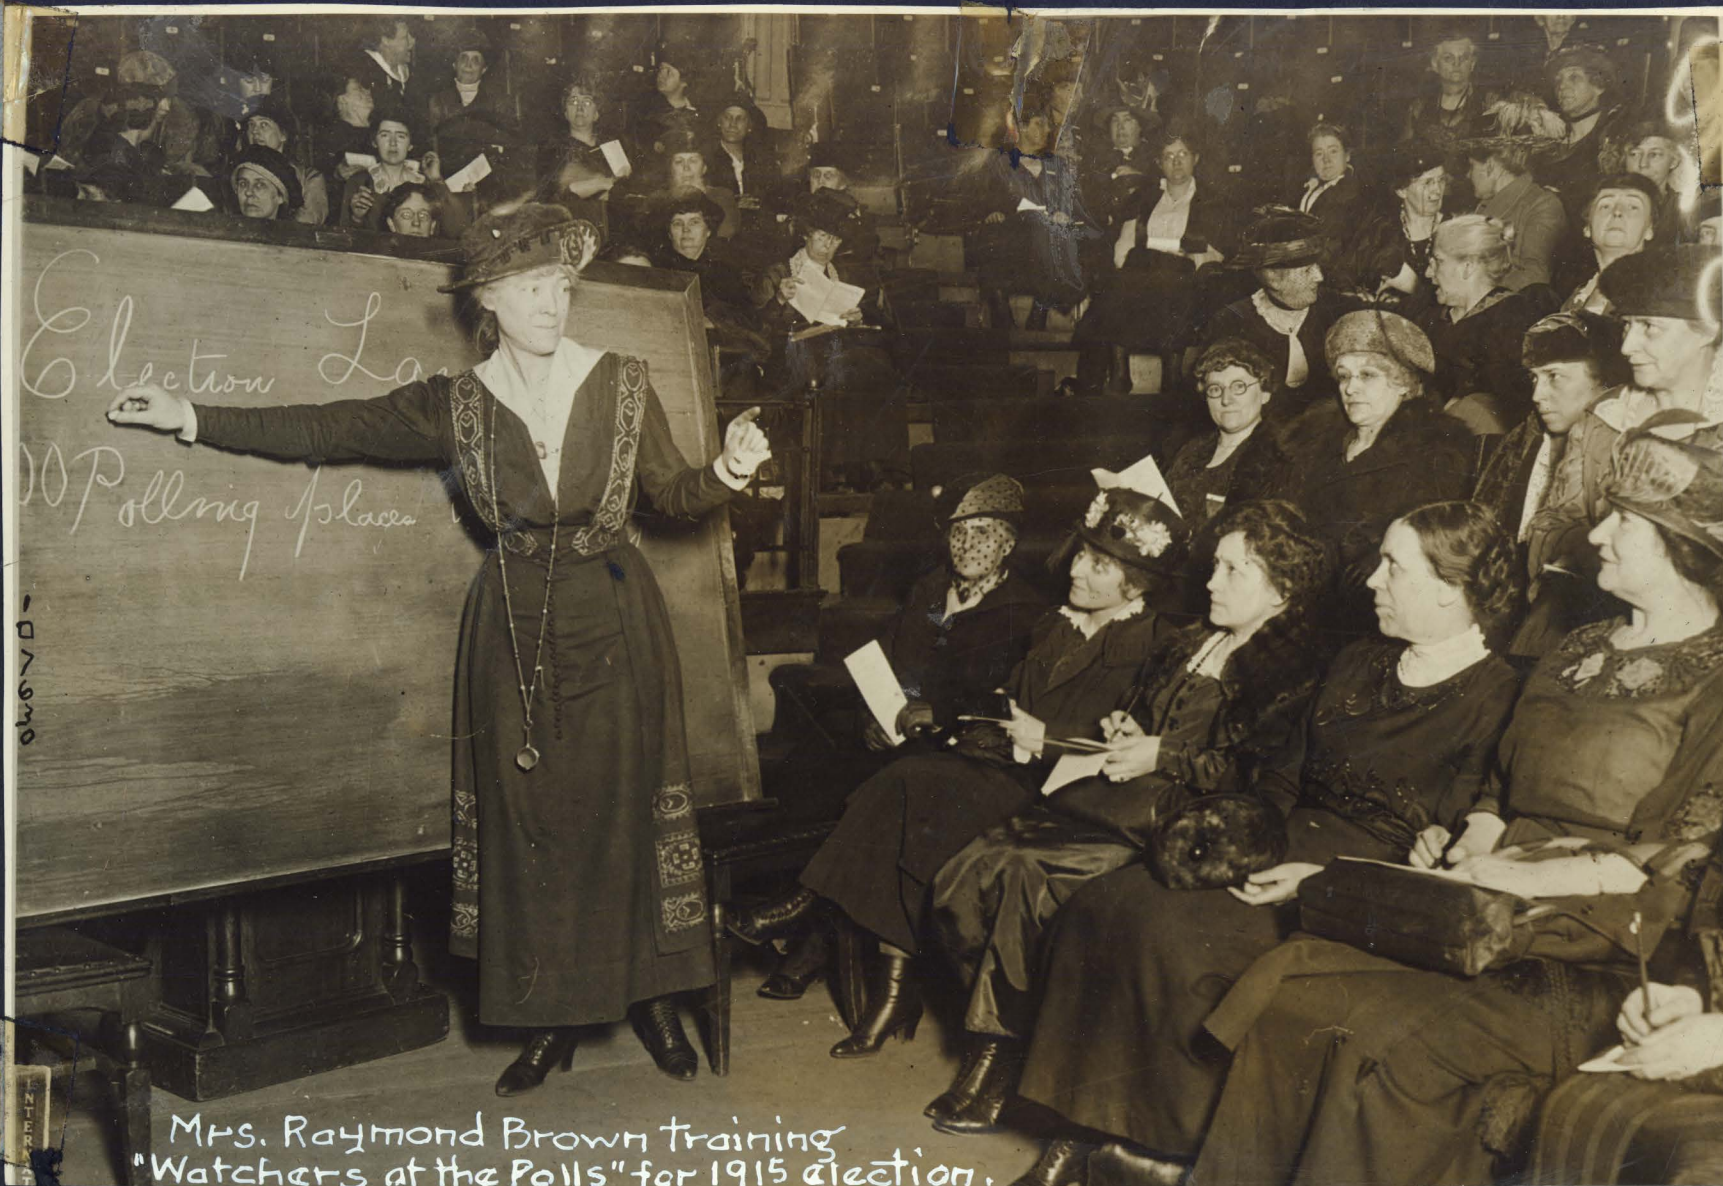 Election La
00 Polling places
Mrs. Raymond Brown training
"Watchers at the Polls" for 1915 election.
INTER